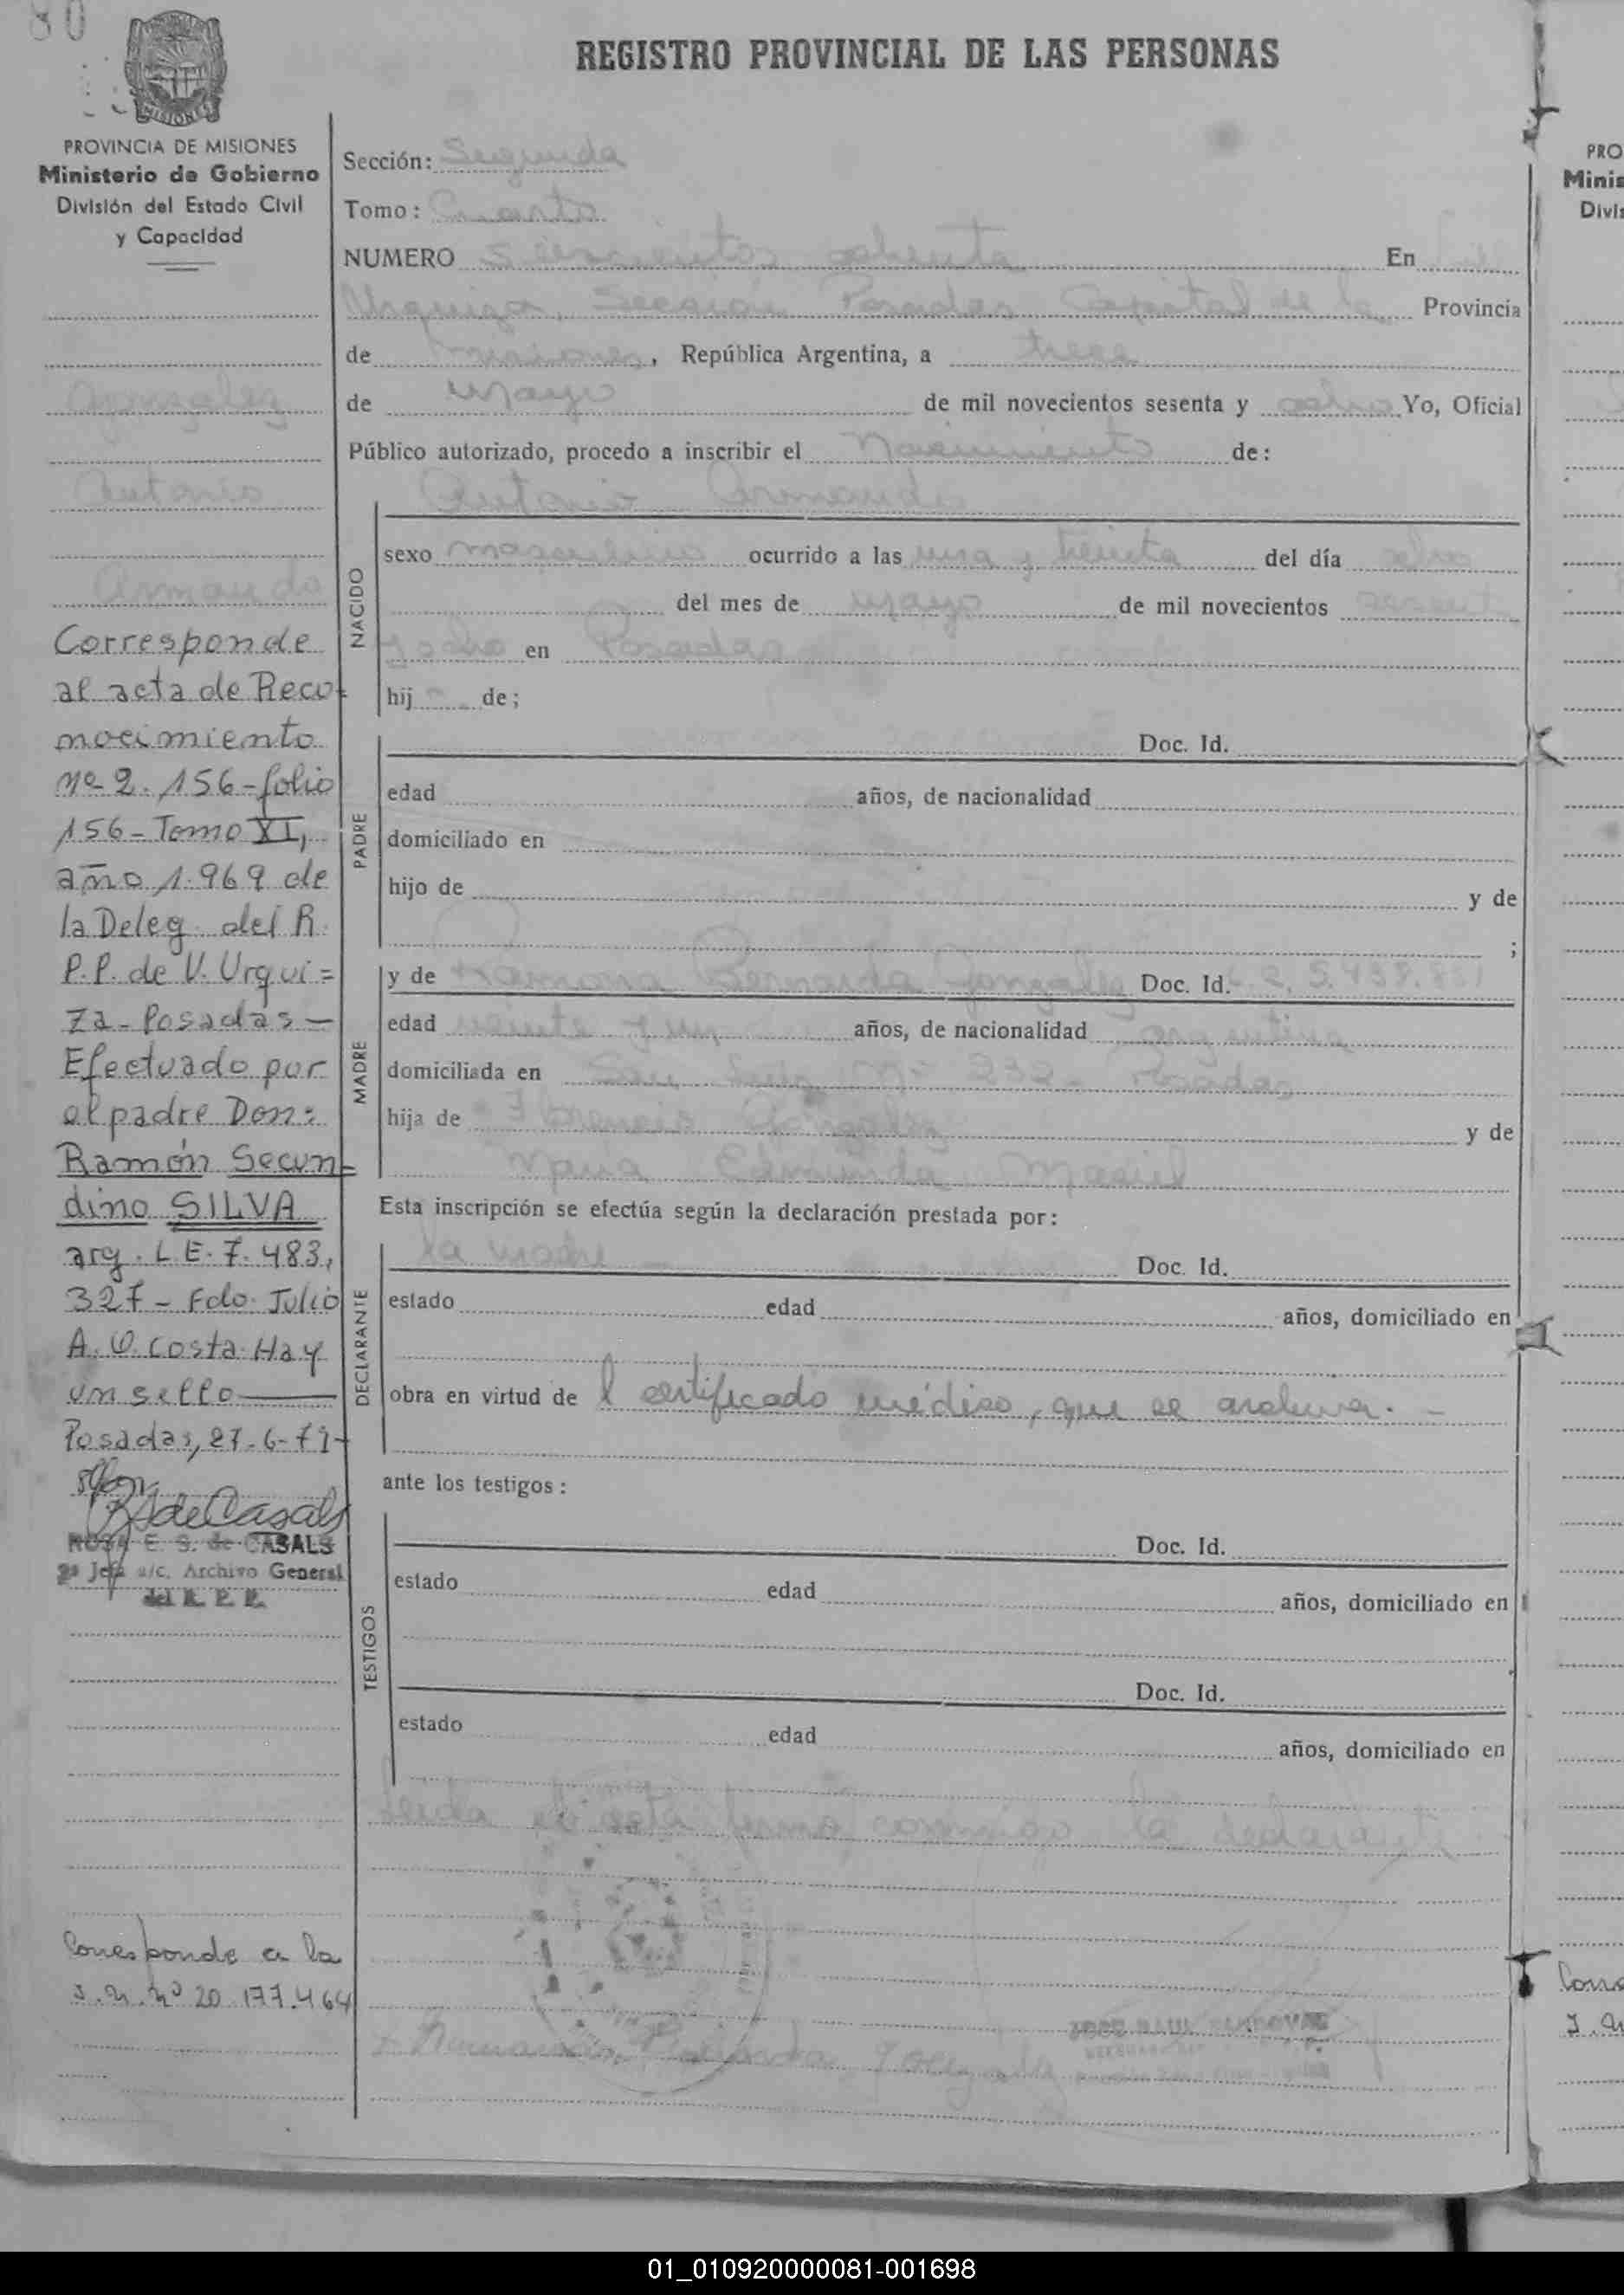 80
REGISTRO PROVINCIAL DE LAS PERSONAS
MISIONES
PROVINCIA DE MISIONES
Ministerio de Gobierno
División del Estado Civil
y Capacidad
Gonzalez
Antonio
Armando
Corresponde
al acta de Reco-
nocimiento
nº 2.156-folio
156-Tomo XI,
año 1.969 de
la Deleg. del R.
P.P. de V. Urqui=
za-Posadas-
Efectuado por
el padre Don:
Ramón Secun-
dino SILVA
arg. L.E. 7.483,
327- Fdo. Julio
A. Costa. Hay
un sello
Posadas, 27-6-71-
ROSA E. S. de CASALS
2ª Jefa a/c. Archivo General
del R. P. P.
Corresponde a la
nº 20.177.464
Sección: Segunda
Tomo: Cuarto
NUMERO seiscientos ochenta En
Urquiza, Sección Posadas Capital de la Provincia
de Misiones, República Argentina, a trece
de mayo de mil novecientos sesenta y ocho Yo, Oficial
Público autorizado, procedo a inscribir el Nacimiento de:
NACIDO
Antonio Armando
sexo masculino ocurrido a las una y treinta del día ocho
del mes de mayo de mil novecientos sesenta
y ocho en Posadas
hij de;
PADRE
Doc. Id.
edad años, de nacionalidad
domiciliado en
hijo de y de
;
MADRE
y de Ramona Bernarda Gonzalez Doc. Id.
edad veinte y un años, de nacionalidad argentina
domiciliada en San Luis Nº 232- Posadas
hija de Florencio González y de
María Edmunda Maciel
Esta inscripción se efectúa según la declaración prestada por:
DECLARANTE
la madre - Doc. Id.
estado edad años, domiciliado en
obra en virtud de l certificado médico, que se archiva.-
ante los testigos:
TESTIGOS
Doc. Id.
estado edad años, domiciliado en
Doc. Id.
estado edad años, domiciliado en
Leida el acta firma conmigo la declarante
JOSE RAUL SANDOVAL
PRO
Minis
Divis
01_010920000081-001698